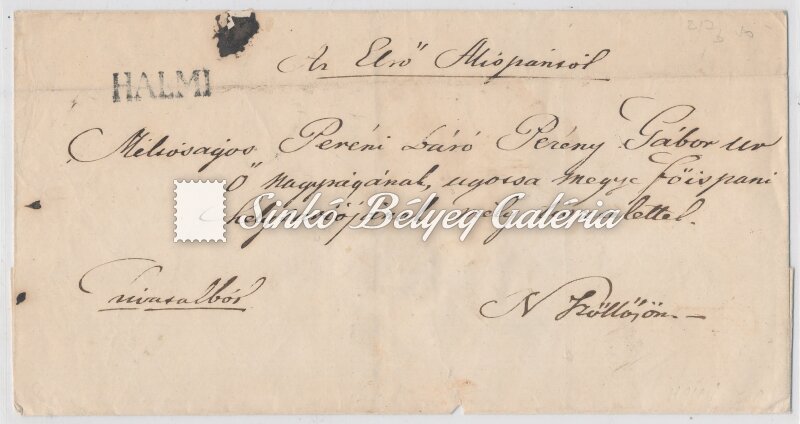 Az Első Alispántól
HALMI
Méltóságos Peréni báró Perény Gábor Ur
Ő Nagyságának, ugocsa megye főispáni
Sinkó Bélyeg Galéria
hivatalból
N Szőllősön.